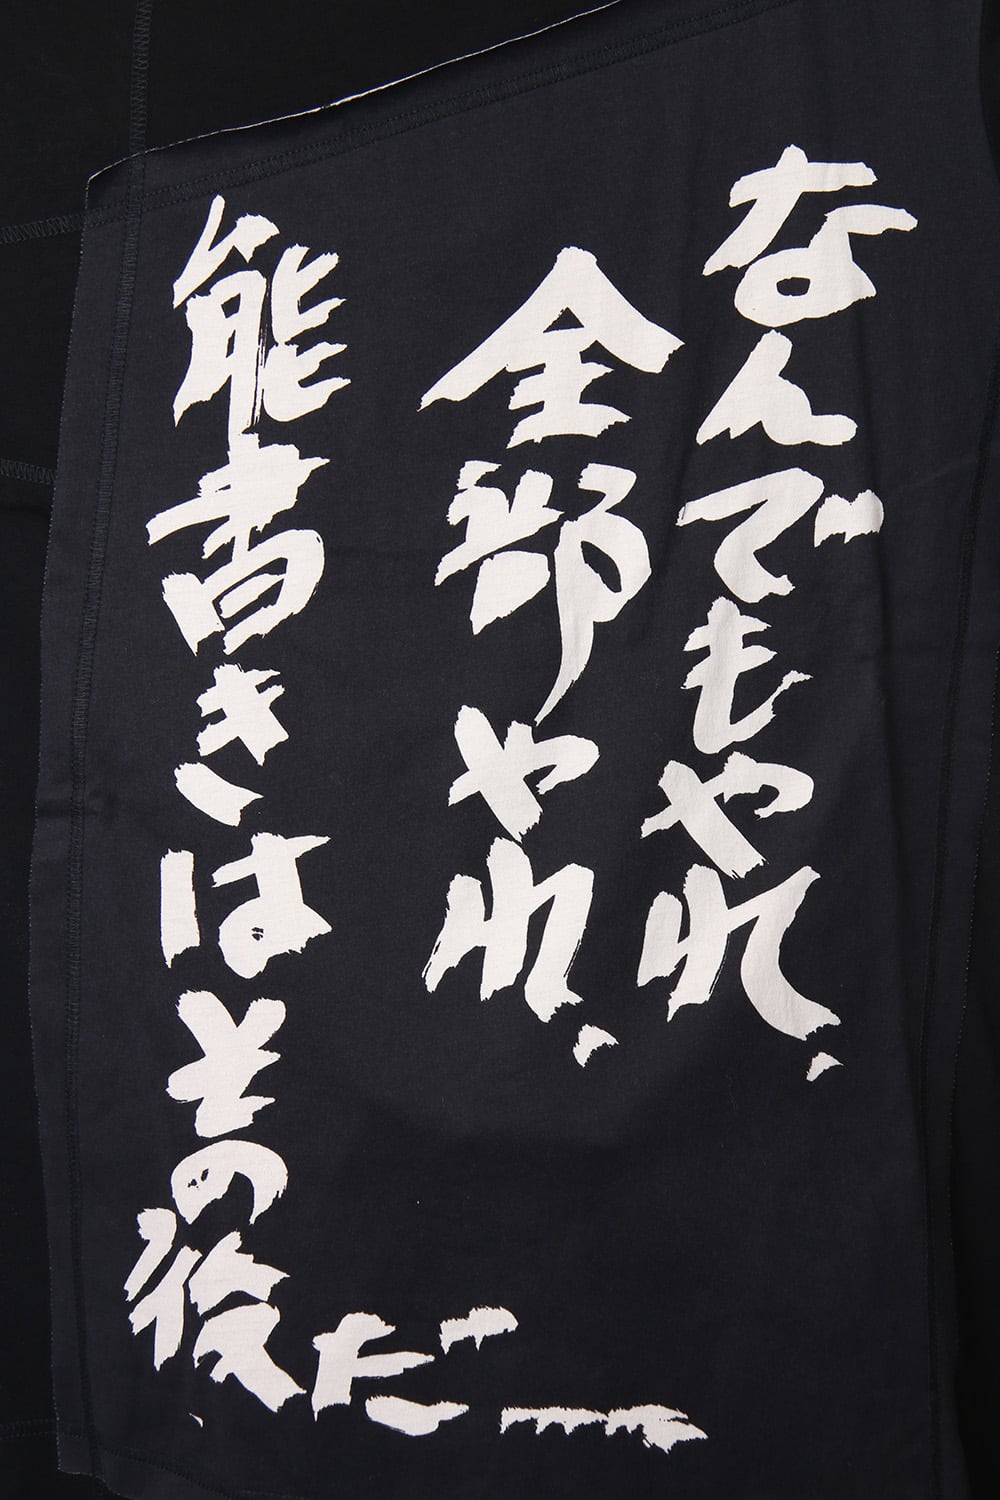 なんでもやれ、
全部やれ、
能書きはその後だ……